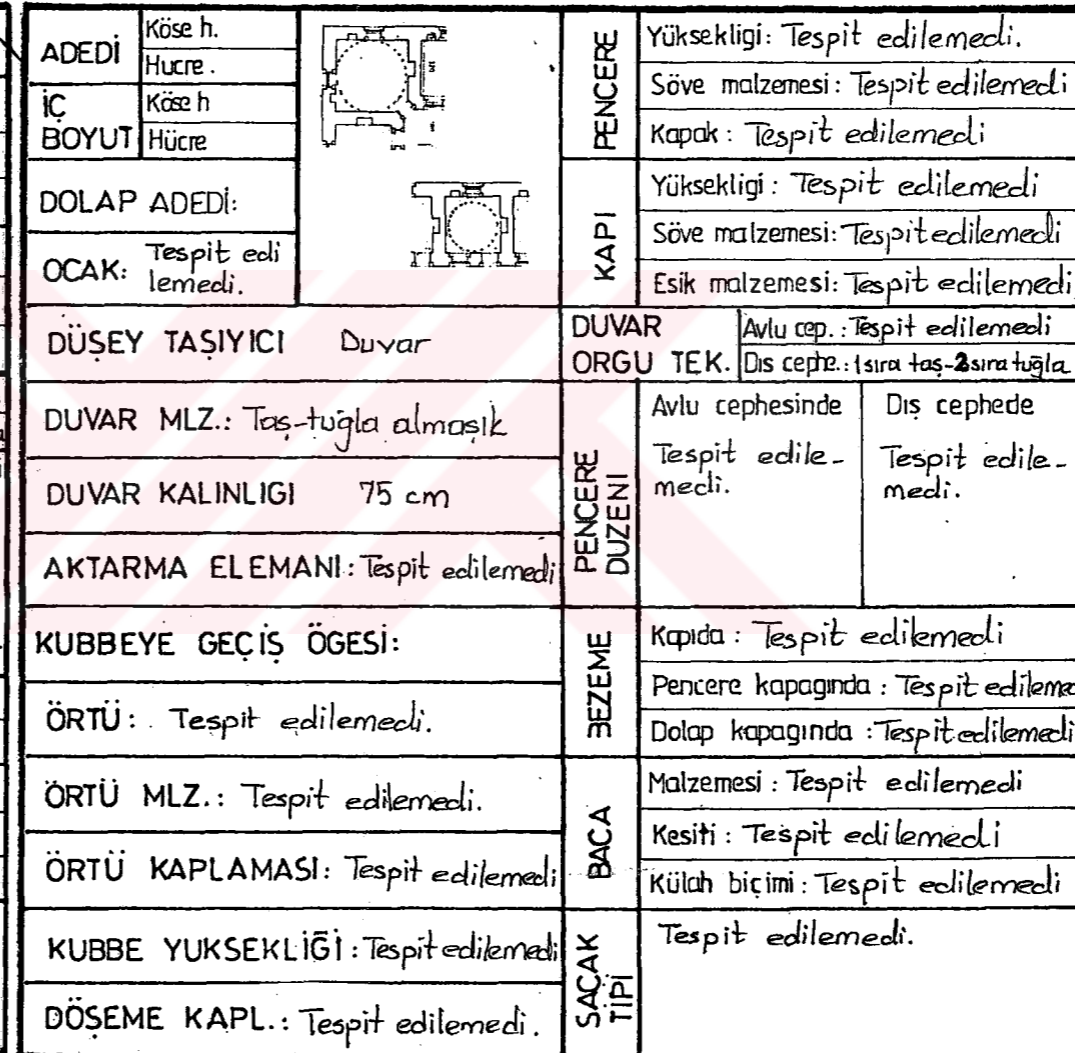 ADEDİ
Köse h.
Hucre.
İÇ BOYUT
Köse h
Hücre
DOLAP ADEDİ:
OCAK: Tespit edi
lemedi.
DÜŞEY TAŞIYICI Duvar
DUVAR MLZ.: Taş-tuğla almaşık
DUVAR KALINLIGI 75 cm
AKTARMA ELEMANI: Tespit edilemedi
KUBBEYE GEÇİŞ ÖGESİ:
ÖRTÜ: Tespit edilemedi.
ÖRTÜ MLZ.: Tespit edilemedi.
ÖRTÜ KAPLAMASI: Tespit edilemedi
KUBBE YUKSEKLİĞİ: Tespit edilemedi
DÖŞEME KAPL.: Tespit edilemedi.
PENCERE
Yüksekligi: Tespit edilemedi.
Söve malzemesi: Tespit edilemedi
Kapak: Tespit edilemedi
KAPI
Yüksekligi: Tespit edilemedi
Söve malzemesi: Tespit edilemedi
Esik malzemesi: Tespit edilemedi
DUVAR
ORGU TEK.
Avlu cep.: Tespit edilemedi
Dıs cephe.: 1 sıra taş-2 sıra tuğla
PENCERE
DUZENI
Avlu cephesinde
Tespit edile-
medi.
Dış cephede
Tespit edile-
medi.
BEZEME
Kapıda: Tespit edilemedi
Pencere kapagında: Tespit edileme
Dolap kapagında: Tespit edilemedi
BACA
Malzemesi: Tespit edilemedi
Kesiti: Tespit edilemedi
Külah biçimi: Tespit edilemedi
SAÇAK
TİPİ
Tespit edilemedi.